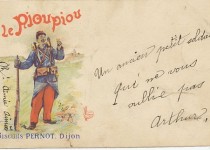 Le Pioupiou
Un ancien petit soldat
qui ne vous
oublie pas
Arthur
Biscuits PERNOT, Dijon